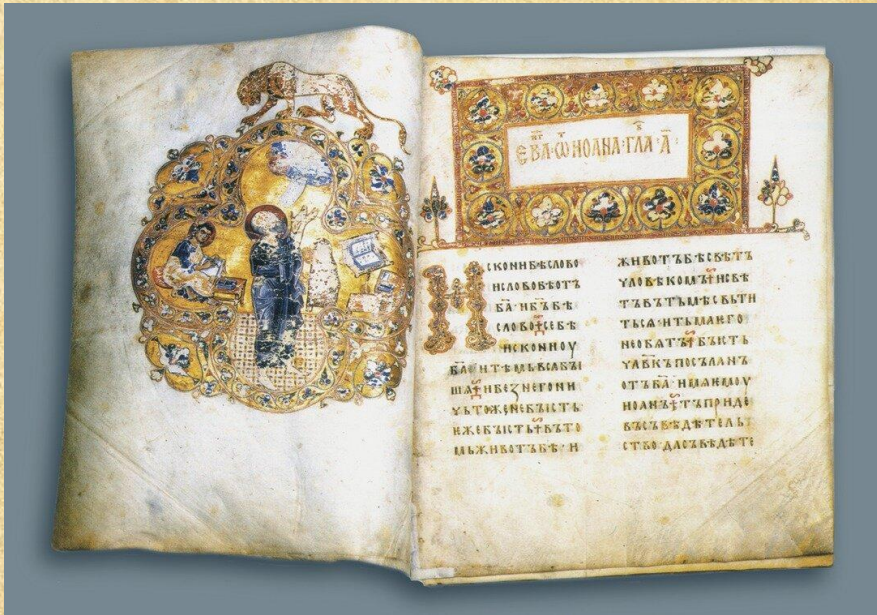 ЕВА҃Г · Ѡ҃Т ИОАНА · ГЛА҃В · А҃ ·
ИСКОНИБѢСЛОВО
ИСЛОВОБѢОТЪ
БА҃ · ИБЪ҃БѢ
СЛОВО⁜СЕБѢ
ИСКОНИОУ
БА҃ИТѢМЬВЬСАБЫ
ША⁜ИБЕЗНЕГОНИ
ЧЬТОЖЕНЕБЫСТЬ
ИЖЕБЫСТЬ⁜ВЪТО
МЬЖИВОТЪБѢ · И
ЖИВОТЪБѢСВѢТЪ
ЧЛОВѢКОМЪ⁜ИСВѢ
ТЪВЪТЬМѢСВЬТИ
ТЬСѦ · ИТЬМАѤГО
НЕОБѦТЪ⁜БЫСТЬ
ЧЛВ҃КЪПОСЪЛАНЪ
ОТЪБА҃ · ИМѦѤМОУ
ИОАНЪ⁜ТЪПРИДЕ
ВЪСЪВѢДѢТЕЛЬ
СТВО · ДАСЪВѢДѢТЕ